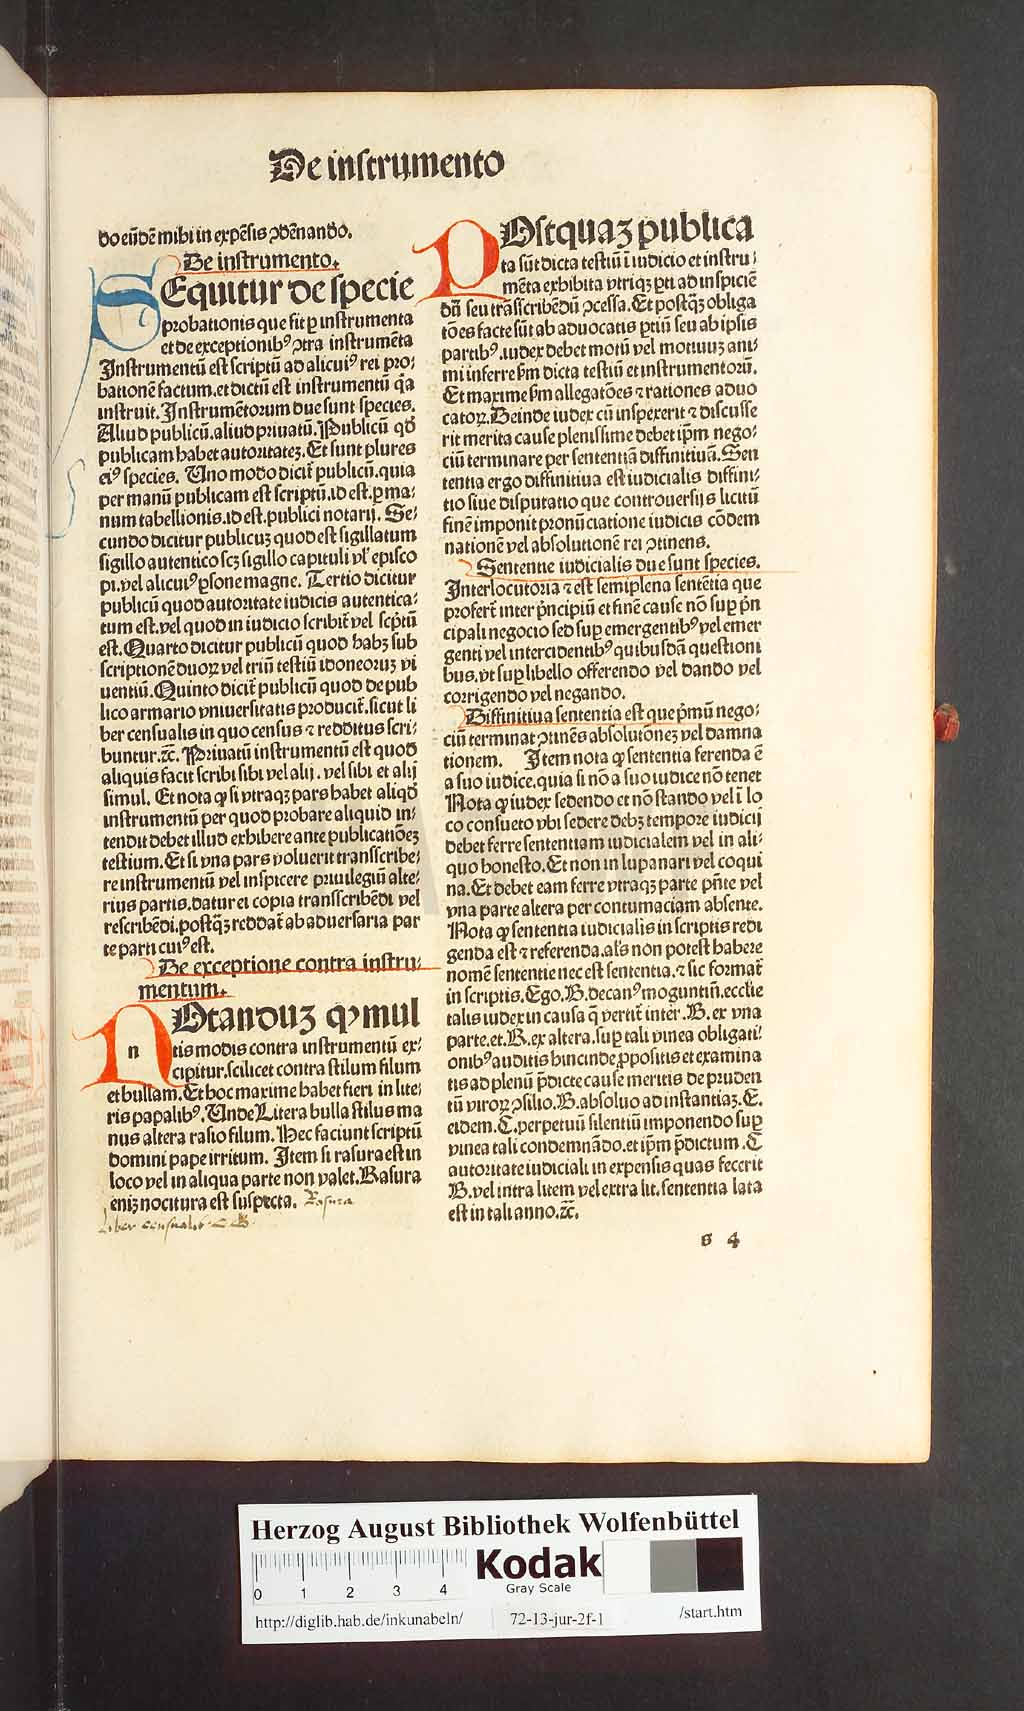 De instrumento
do eūdē mihi in expēsis ꝯdēnando.
De instrumento.
SEquitur de specie
probationis que fit ꝑ instrumenta
et de exceptionibꝰ ꝯtra instrumēta
Instrumentū est scriptū ad alicuiꝰ rei pro⸗
bationē factum.et dictū est instrumentū q̄a
instruit. Instrumētorum due sunt species.
Aliud publicū.aliud priuatū. Publicū qđ
publicam habet autoritatez. Et sunt plures
eiꝰ species. Uno modo dicit̄ publicū.quia
per manū publicam est scriptū.id est.ꝑ ma⸗
num tabellionis.id est.publici notarij. Se⸗
cundo dicitur publicuz quod est sigillatum
sigillo autentico scꝫ sigillo capituli vl' episco
pi.vel alicuiꝰ ꝑsone magne. Tertio dicitur
publicū quod autoritate iudicis autentica⸗
tum est.vel quod in iudicio scribit̄ vel scp̄tū
est. Quarto dicitur publicū quod habꝫ sub
scriptionē duoꝝ vel triū testiū idoneoruꝫ vi
uentiū. Quinto dicit̄ publicū quod de pub
lico armario vniuersitatis producit̄.sicut li
ber censualis in quo census ⁊ redditus scri⸗
buntur.⁊c̄. Priuatū instrumentū est quod
aliquis facit scribi sibi vel alij. vel sibi et alij
simul. Et nota ꝙ si vtraqꝫ pars habet aliqđ
instrumentū per quod probare aliquid in⸗
tendit debet illud exhibere ante publicatiōeꝫ
testium. Et si vna pars voluerit transscribe⸗
re instrumentū vel inspicere priuilegiū alte⸗
rius partis.datur ei copia transscribēdi vel
rescribēdi.postqꝫ̄ reddat̄ ab aduersaria par
te parti cuiꝰ est.
De exceptione contra instru⸗
mentum.
NOtanduꝫ ꝙ mul
n
tis modis contra instrumentū ex⸗
cipitur.scilicet contra stilum filum
et bullam. Et hoc maxime habet fieri in lite⸗
ris papalibꝰ. Unde Litera bulla stilus ma
nus altera rasio filum. Hec faciunt scriptū
domini pape irritum. Item si rasura est in
loco vel in aliqua parte non valet. Rasura
eniꝫ nocitura est suspecta. Rasura
Liber censualis
POstquaꝫ publica
ta sūt dicta testiū ī iudicio et instru⸗
mēta exhibita vtriqꝫ ꝑti ad inspiciē
dū seu trāsscribēdū ꝯcessa. Et postqꝫ̄ obliga
tōes facte sūt ab aduocatis ꝑtiū seu ab ipsis
partibꝰ.iudex debet motū vel motiuuꝫ ani⸗
mi inferre ẜm dicta testiū et instrumentorū.
Et maxime ẜm allegatōes ⁊ rationes aduo
catoꝝ. Deinde iudex cū inspexerit ⁊ discusse
rit merita cause plenissime debet ip̄m nego⸗
ciū terminare per sententiā diffinitiuā. Sen
tentia ergo diffinitiua est iudicialis diffini⸗
tio siue disputatio que controuersijs licitū
finē imponit pronūciatione iudicis cōdem
nationē vel absolutionē rei ꝯtinens.
Sententie iudicialis due sunt species.
Interlocutoria ⁊ est semiplena sentētia que
profert̄ inter p̄ncipiū et finē cause nō suꝑ p̄n
cipali negocio sed suꝑ emergentibꝰ vel emer
genti vel intercidentibꝰ quibusdā questioni
bus.vt suꝑ libello offerendo vel dando vel
corrigendo vel negando.
Diffinitiua sententia est que p̄mū nego⸗
ciū terminat ꝯtinēs absolutioneꝫ vel damna
tionem. Item nota ꝙ sententia ferenda ē
a suo iudice.quia si nō a suo iudice nō tenet
Nota ꝙ iudex sedendo et nō stando vel ī lo
co consueto vbi sedere debꝫ tempore iudicij
debet ferre sententiam iudicialem vel in ali⸗
quo honesto. Et non in lupanari vel coqui
na. Et debet eam ferre vtraqꝫ parte p̄nte vel
vna parte altera per contumaciam absente.
Nota ꝙ sententia iudicialis in scriptis redi
genda est ⁊ referenda.al's non potest habere
nomē sententie nec est sententia.⁊ sic format̄
in scriptis. Ego. B. decanꝰ moguntiñ.ecclīe
talis iudex in causa q̄ vertit̄ inter. B. ex vna
parte.et. R. ex altera.suꝑ tali vinea obligati⸗
onibꝰ auditis hincinde ꝓpositis et examina
tis ad plenū p̄dicte cause meritis de pruden
tū viroꝝ ꝯsilio. B. absoluo ad instantiaꝫ. C.
eidem. C. perpetuū silentiū imponendo suꝑ
vinea tali condemnādo.et ip̄m p̄dictum. C
autoritate iudiciali in expensis quas fecerit
B. vel intra litem vel extra lit. sententia lata
est in tali anno.⁊c̄.
s 4
Herzog August Bibliothek Wolfenbüttel
0 1 2 3 4
Kodak
Gray Scale
http://diglib.hab.de/inkunabeln/ 72-13-jur-2f-1 /start.htm